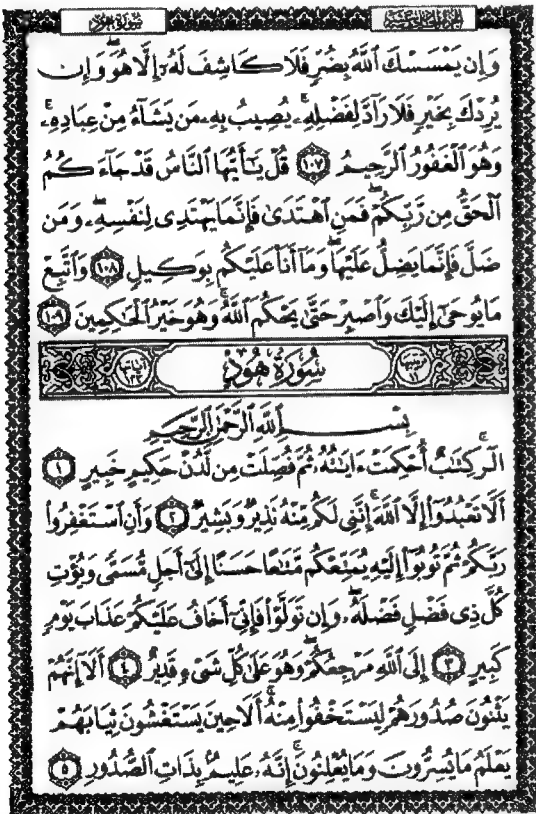 سورة هود
وَإِن يَمْسَسْكَ ٱللَّهُ بِضُرٍّ فَلَا كَاشِفَ لَهُۥٓ إِلَّا هُوَ ۖ وَإِن
يُرِدْكَ بِخَيْرٍ فَلَا رَآدَّ لِفَضْلِهِۦ ۚ يُصِيبُ بِهِۦ مَن يَشَآءُ مِنْ عِبَادِهِۦ ۚ
وَهُوَ ٱلْغَفُورُ ٱلرَّحِيمُ ١٠٧ قُلْ يَـٰٓأَيُّهَا ٱلنَّاسُ قَدْ جَآءَكُمُ
ٱلْحَقُّ مِن رَّبِّكُمْ ۖ فَمَنِ ٱهْتَدَىٰ فَإِنَّمَا يَهْتَدِى لِنَفْسِهِۦ ۖ وَمَن
ضَلَّ فَإِنَّمَا يَضِلُّ عَلَيْهَا ۖ وَمَآ أَنَا۠ عَلَيْكُم بِوَكِيلٍ ١٠٨ وَٱتَّبِعْ
مَا يُوحَىٰٓ إِلَيْكَ وَٱصْبِرْ حَتَّىٰ يَحْكُمَ ٱللَّهُ ۚ وَهُوَ خَيْرُ ٱلْحَـٰكِمِينَ ١٠٩
سُورَةُ هُودٍ
بِسْمِ ٱللَّهِ ٱلرَّحْمَـٰنِ ٱلرَّحِيمِ
الٓر ۚ كِتَـٰبٌ أُحْكِمَتْ ءَايَـٰتُهُۥ ثُمَّ فُصِّلَتْ مِن لَّدُنْ حَكِيمٍ خَبِيرٍ ١
أَلَّا تَعْبُدُوٓا۟ إِلَّا ٱللَّهَ ۚ إِنَّنِى لَكُم مِّنْهُ نَذِيرٌ وَبَشِيرٌ ٢ وَأَنِ ٱسْتَغْفِرُوا۟
رَبَّكُمْ ثُمَّ تُوبُوٓا۟ إِلَيْهِ يُمَتِّعْكُم مَّتَـٰعًا حَسَنًا إِلَىٰٓ أَجَلٍ مُّسَمًّى وَيُؤْتِ
كُلَّ ذِى فَضْلٍ فَضْلَهُۥ ۖ وَإِن تَوَلَّوْا۟ فَإِنِّىٓ أَخَافُ عَلَيْكُمْ عَذَابَ يَوْمٍ
كَبِيرٍ ٣ إِلَى ٱللَّهِ مَرْجِعُكُمْ ۖ وَهُوَ عَلَىٰ كُلِّ شَىْءٍ قَدِيرٌ ٤ أَلَآ إِنَّهُمْ
يَثْنُونَ صُدُورَهُمْ لِيَسْتَخْفُوا۟ مِنْهُ ۚ أَلَا حِينَ يَسْتَغْشُونَ ثِيَابَهُمْ
يَعْلَمُ مَا يُسِرُّونَ وَمَا يُعْلِنُونَ ۚ إِنَّهُۥ عَلِيمٌۢ بِذَاتِ ٱلصُّدُورِ ٥